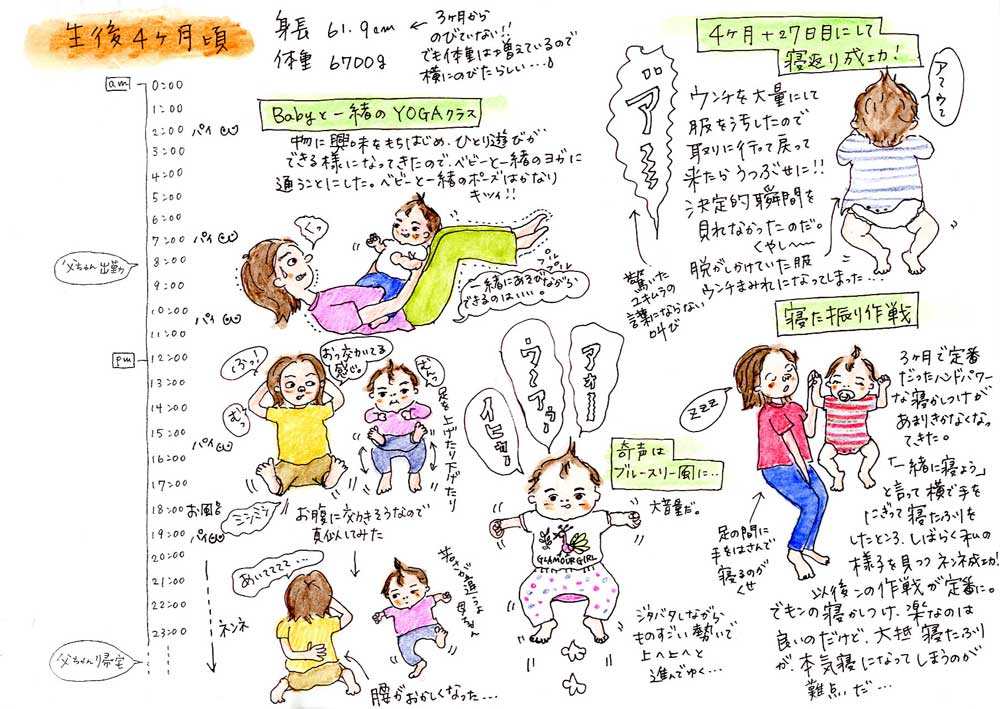 生後4ヶ月頃
身長 61.9cm
体重 6700g
← 3ヶ月から
のびていない!!
でも体重は増えているので
横にのびたらしい…♪
am
0:00
1:00
2:00 パイ
3:00
4:00
5:00
6:00
7:00 パイ
8:00
父ちゃん出勤
9:00
10:00
11:00 パイ
pm
12:00
13:00
14:00
15:00 パイ
16:00
17:00
18:00 お風呂
19:00 パイ
20:00
21:00
22:00 ネンネ
23:00
父ちゃん帰宅
Babyと一緒のYOGAクラス
物に興味をもちはじめ、ひとり遊びが
できる様になってきたので、ベビーと一緒のヨガに
通うことにした。ベビーと一緒のポーズはかなり
キツイ!!
くっ
プル
プル
一緒にあそびながら
できるのはいい。
ぷっ!
むっ
おっ効いてる
感じ。
むっ
足を上げたり下げたり
ミシミシ
お腹に効きそうなので
真似してみた
あいててて…
母ちゃん
腰がおかしくなった…
4ヶ月+27日目にして
寝返り成功!
アウウ
ウンチを大量にして
服を汚したので
取りに行って戻って
来たらうつぶせに!!
決定的瞬間を
見れなかったのだ。
くやし〜
脱がしかけていた服
ウンチまみれになってしまった…
驚いた
ユキムラの
言葉にならない
叫び
奇声は
ブルースリー風に…
大音量だ。
GLAMOUR GIRL
ジタバタしながら
ものすごい勢いで
上へ上へと
進んでゆく…
寝た振り作戦
ZZZ
3ヶ月で定番
だったハンドパワー
な寝かしつけが
あまりきかなくなっ
てきた。
「一緒に寝よう」
と言って横で手を
にぎって寝たふりを
したところ、しばらく私の
様子を見つつネンネ成功!
以後この作戦が定番に。
でもこの寝かしつけ、楽なのは
良いのだけど、大抵寝たふり
が、本気寝になってしまうのが
難点だ…
足の間に
手をはさんで
寝るのが
くせ